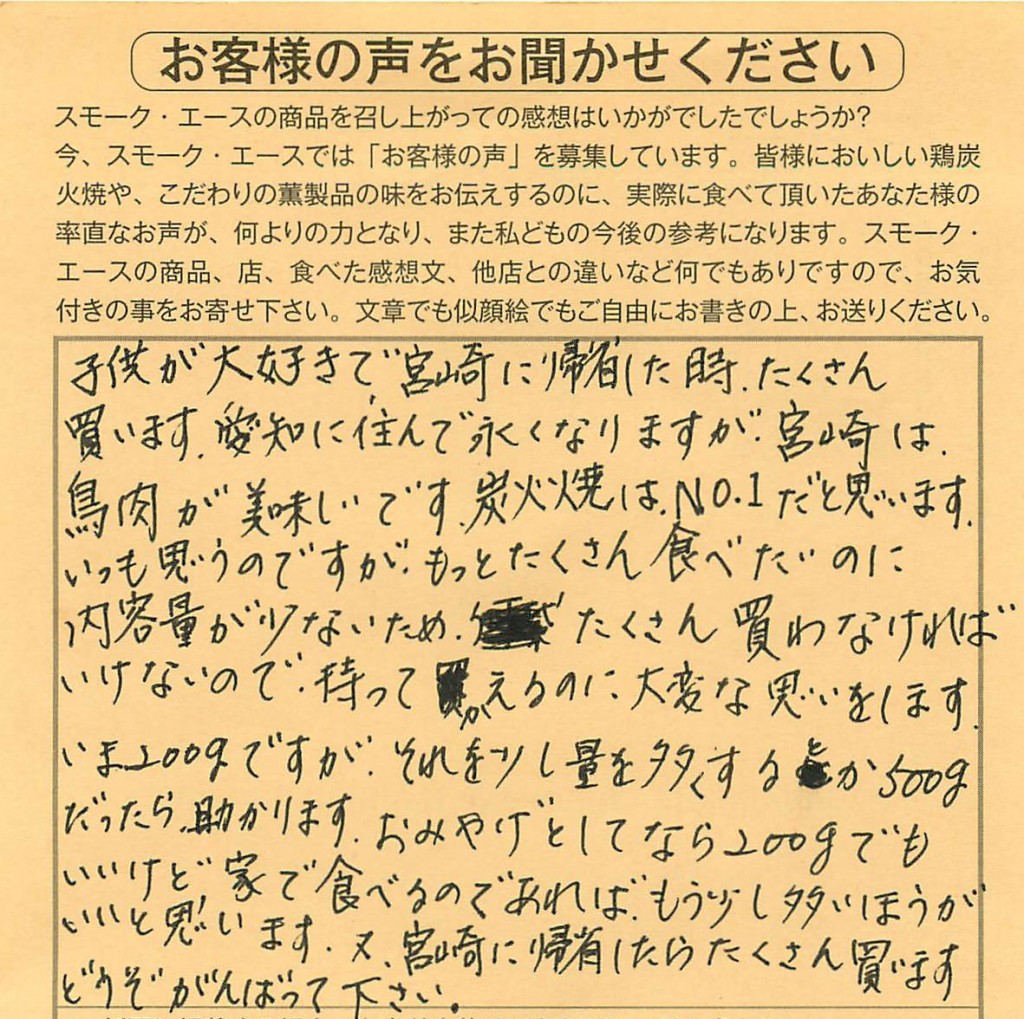 お客様の声をお聞かせください
スモーク・エースの商品を召し上がっての感想はいかがでしたでしょうか?
今、スモーク・エースでは「お客様の声」を募集しています。皆様においしい鶏炭
火焼や、こだわりの薫製品の味をお伝えするのに、実際に食べて頂いたあなた様の
率直なお声が、何よりの力となり、また私どもの今後の参考になります。スモーク・
エースの商品、店、食べた感想文、他店との違いなど何でもありですので、お気
付きの事をお寄せ下さい。文章でも似顔絵でもご自由にお書きの上、お送りください。
子供が大好きで、宮崎に帰省した時、たくさん
買います。愛知に住んで永くなりますが、宮崎は、
鳥肉が美味しいです。炭火焼は、NO.1だと思います。
いつも思うのですが、もっとたくさん食べたいのに
内容量が少ないため、たくさん買わなければ
いけないので、持ってかえるのに、大変な思いをします。
いま200gですが、それを少し量を多くするとか500g
だったら、助かります。おみやげとしてなら200gでも
いいけど家で食べるのであれば、もう少し多いほうが
いいと思います。又、宮崎に帰省したらたくさん買います
どうぞがんばって下さい。